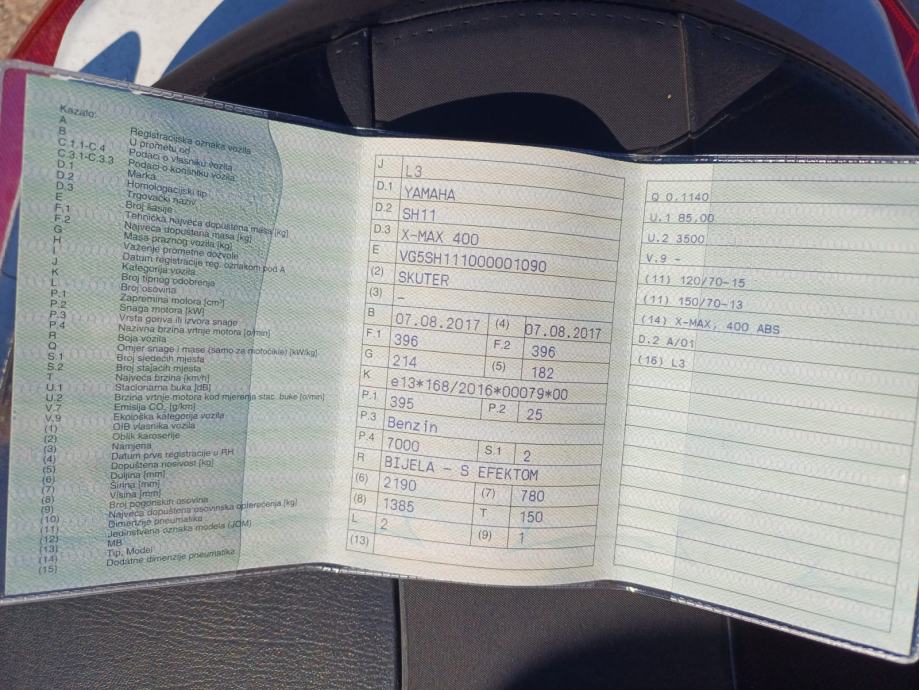 Kazalo:
A Registracijska oznaka vozila
B U prometu od
C.1.1-C.4 Podaci o vlasniku vozila
C.3.1-C.3.3 Podaci o korisniku vozila
D.1 Marka
D.2 Homologacijski tip
D.3 Trgovački naziv
E Broj šasije
F.1 Tehnička najveća dopuštena masa [kg]
F.2 Najveća dopuštena masa [kg]
G Masa praznog vozila [kg]
H Važenje prometne dozvole
I Datum registracije reg. oznakom pod A
J Kategorija vozila
K Broj tipnog odobrenja
L Broj osovina
P.1 Zapremina motora [cm³]
P.2 Snaga motora [kW]
P.3 Vrsta goriva ili izvora snage
P.4 Nazivna brzina vrtnje motora [o/min]
R Boja vozila
Q Omjer snage i mase (samo za motocikle) [kW/kg]
S.1 Broj sjedećih mjesta
S.2 Broj stajaćih mjesta
T Najveća brzina [km/h]
U.1 Stacionarna buka [dB]
U.2 Brzina vrtnje motora kod mjerenja stac. buke [o/min]
V.7 Emisija CO₂ [g/km]
V.9 Ekološka kategorija vozila
(1) OIB vlasnika vozila
(2) Oblik karoserije
(3) Namjena
(4) Datum prve registracije u RH
(5) Dopuštena nosivost [kg]
(6) Duljina [mm]
(7) Širina [mm]
(8) Visina [mm]
(9) Broj pogonskih osovina
(10) Najveća dopuštena osovinska opterećenja [kg]
(11) Dimenzije pneumatika
(12) Jedinstvena oznaka modela (JOM)
(13) MB
(14) Tip, Model
(15) Dodatne dimenzije pneumatika
J L3
D.1 YAMAHA
D.2 SH11
D.3 X-MAX 400
E VG5SH111000001090
(2) SKUTER
(3) –
B 07.08.2017 (4) 07.08.2017
F.1 396 F.2 396
G 214 (5) 182
K e13*168/2016*00079*00
P.1 395 P.2 25
P.3 Benzin
P.4 7000 S.1 2
R BIJELA – S EFEKTOM
(6) 2190 (7) 780
(8) 1385 T 150
L 2 (9) 1
(13)
Q 0.1140
U.1 85,00
U.2 3500
V.9 –
(11) 120/70-15
(11) 150/70-13
(14) X-MAX; 400 ABS
D.2 A/01
(16) L3